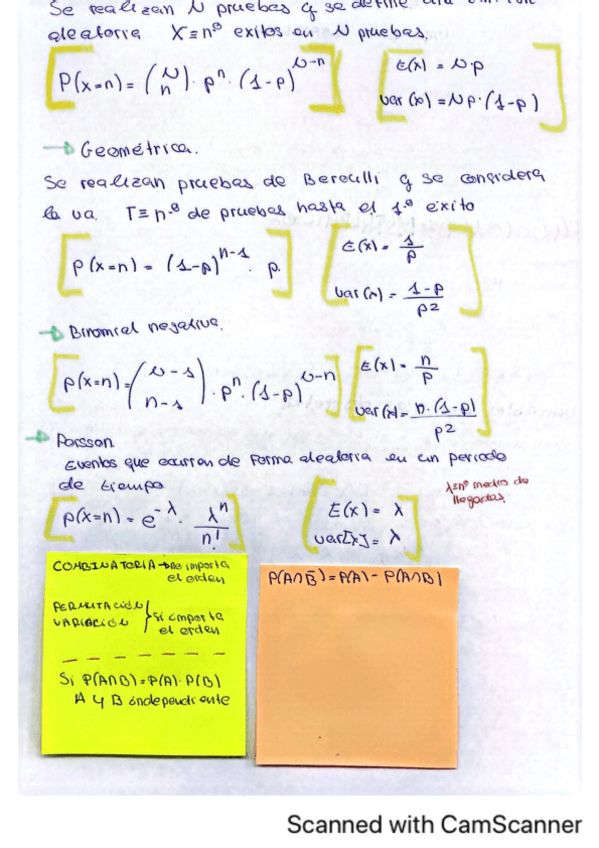 Se realizan N pruebas q se define una
aleatoria X≡nº exitos en N pruebas.
P(x=n) = (N n) · pⁿ · (1-p)ᴺ⁻ⁿ
E(x) = N·p
var(x) = Np·(1-p)
→ Geométrica.
Se realizan pruebas de Bereulli q se considera
la va. T≡ n.º de pruebas hasta el 1.º exito
P(x=n) = (1-p)ⁿ⁻¹ · p.
E(x) = 1/p
var(x) = 1-p/p²
→ Binomial negativa.
P(x=n) = (N-1 n-1) · pⁿ · (1-p)ᴺ⁻ⁿ
E(x) = n/p
var(x) = n·(1-p)/p²
→ Poisson
Eventos que ocurren de forma aleatoria en un periodo
de tiempo
λ≡nº medio de
llegadas.
P(x=n) = e^-λ · λⁿ/n!
E(x) = λ
var[x] = λ
COMBINATORIA → no importa
el orden
PERMUTACIÓN
VARIACIÓN } Si importa
el orden
Si P(A∩B)=P(A)·P(B)
A y B independiente
P(A∩B̄)=P(A)-P(A∩B)
Scanned with CamScanner